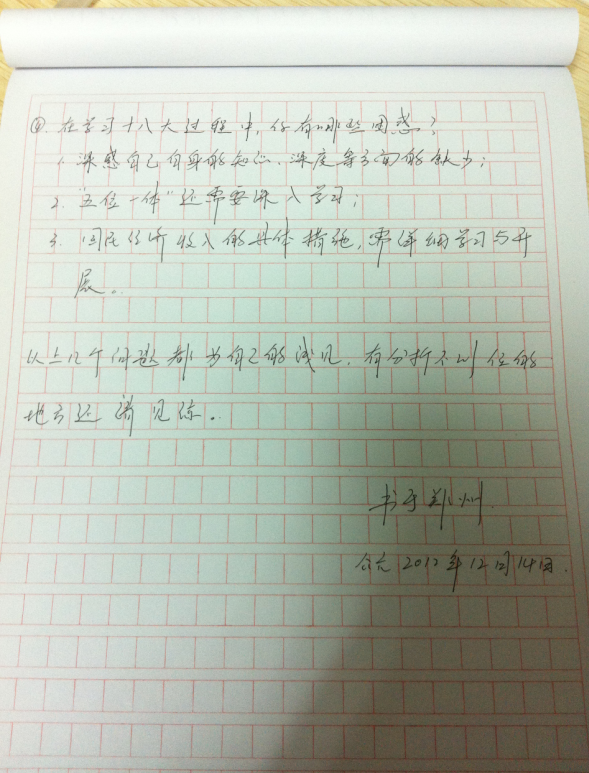 ④. 在学习十八大过程中,你有哪些困惑?
1. 深感自己自身的知识、深度等方面的缺少;
2. "五位一体"还需要深入学习;
3. 国民经济收入的具体措施,需详细学习与开
展。
以上几个问题都为自己的浅见,有分析不到位的
地方还请见谅。
书于郑州.
公元2012年12月14日.